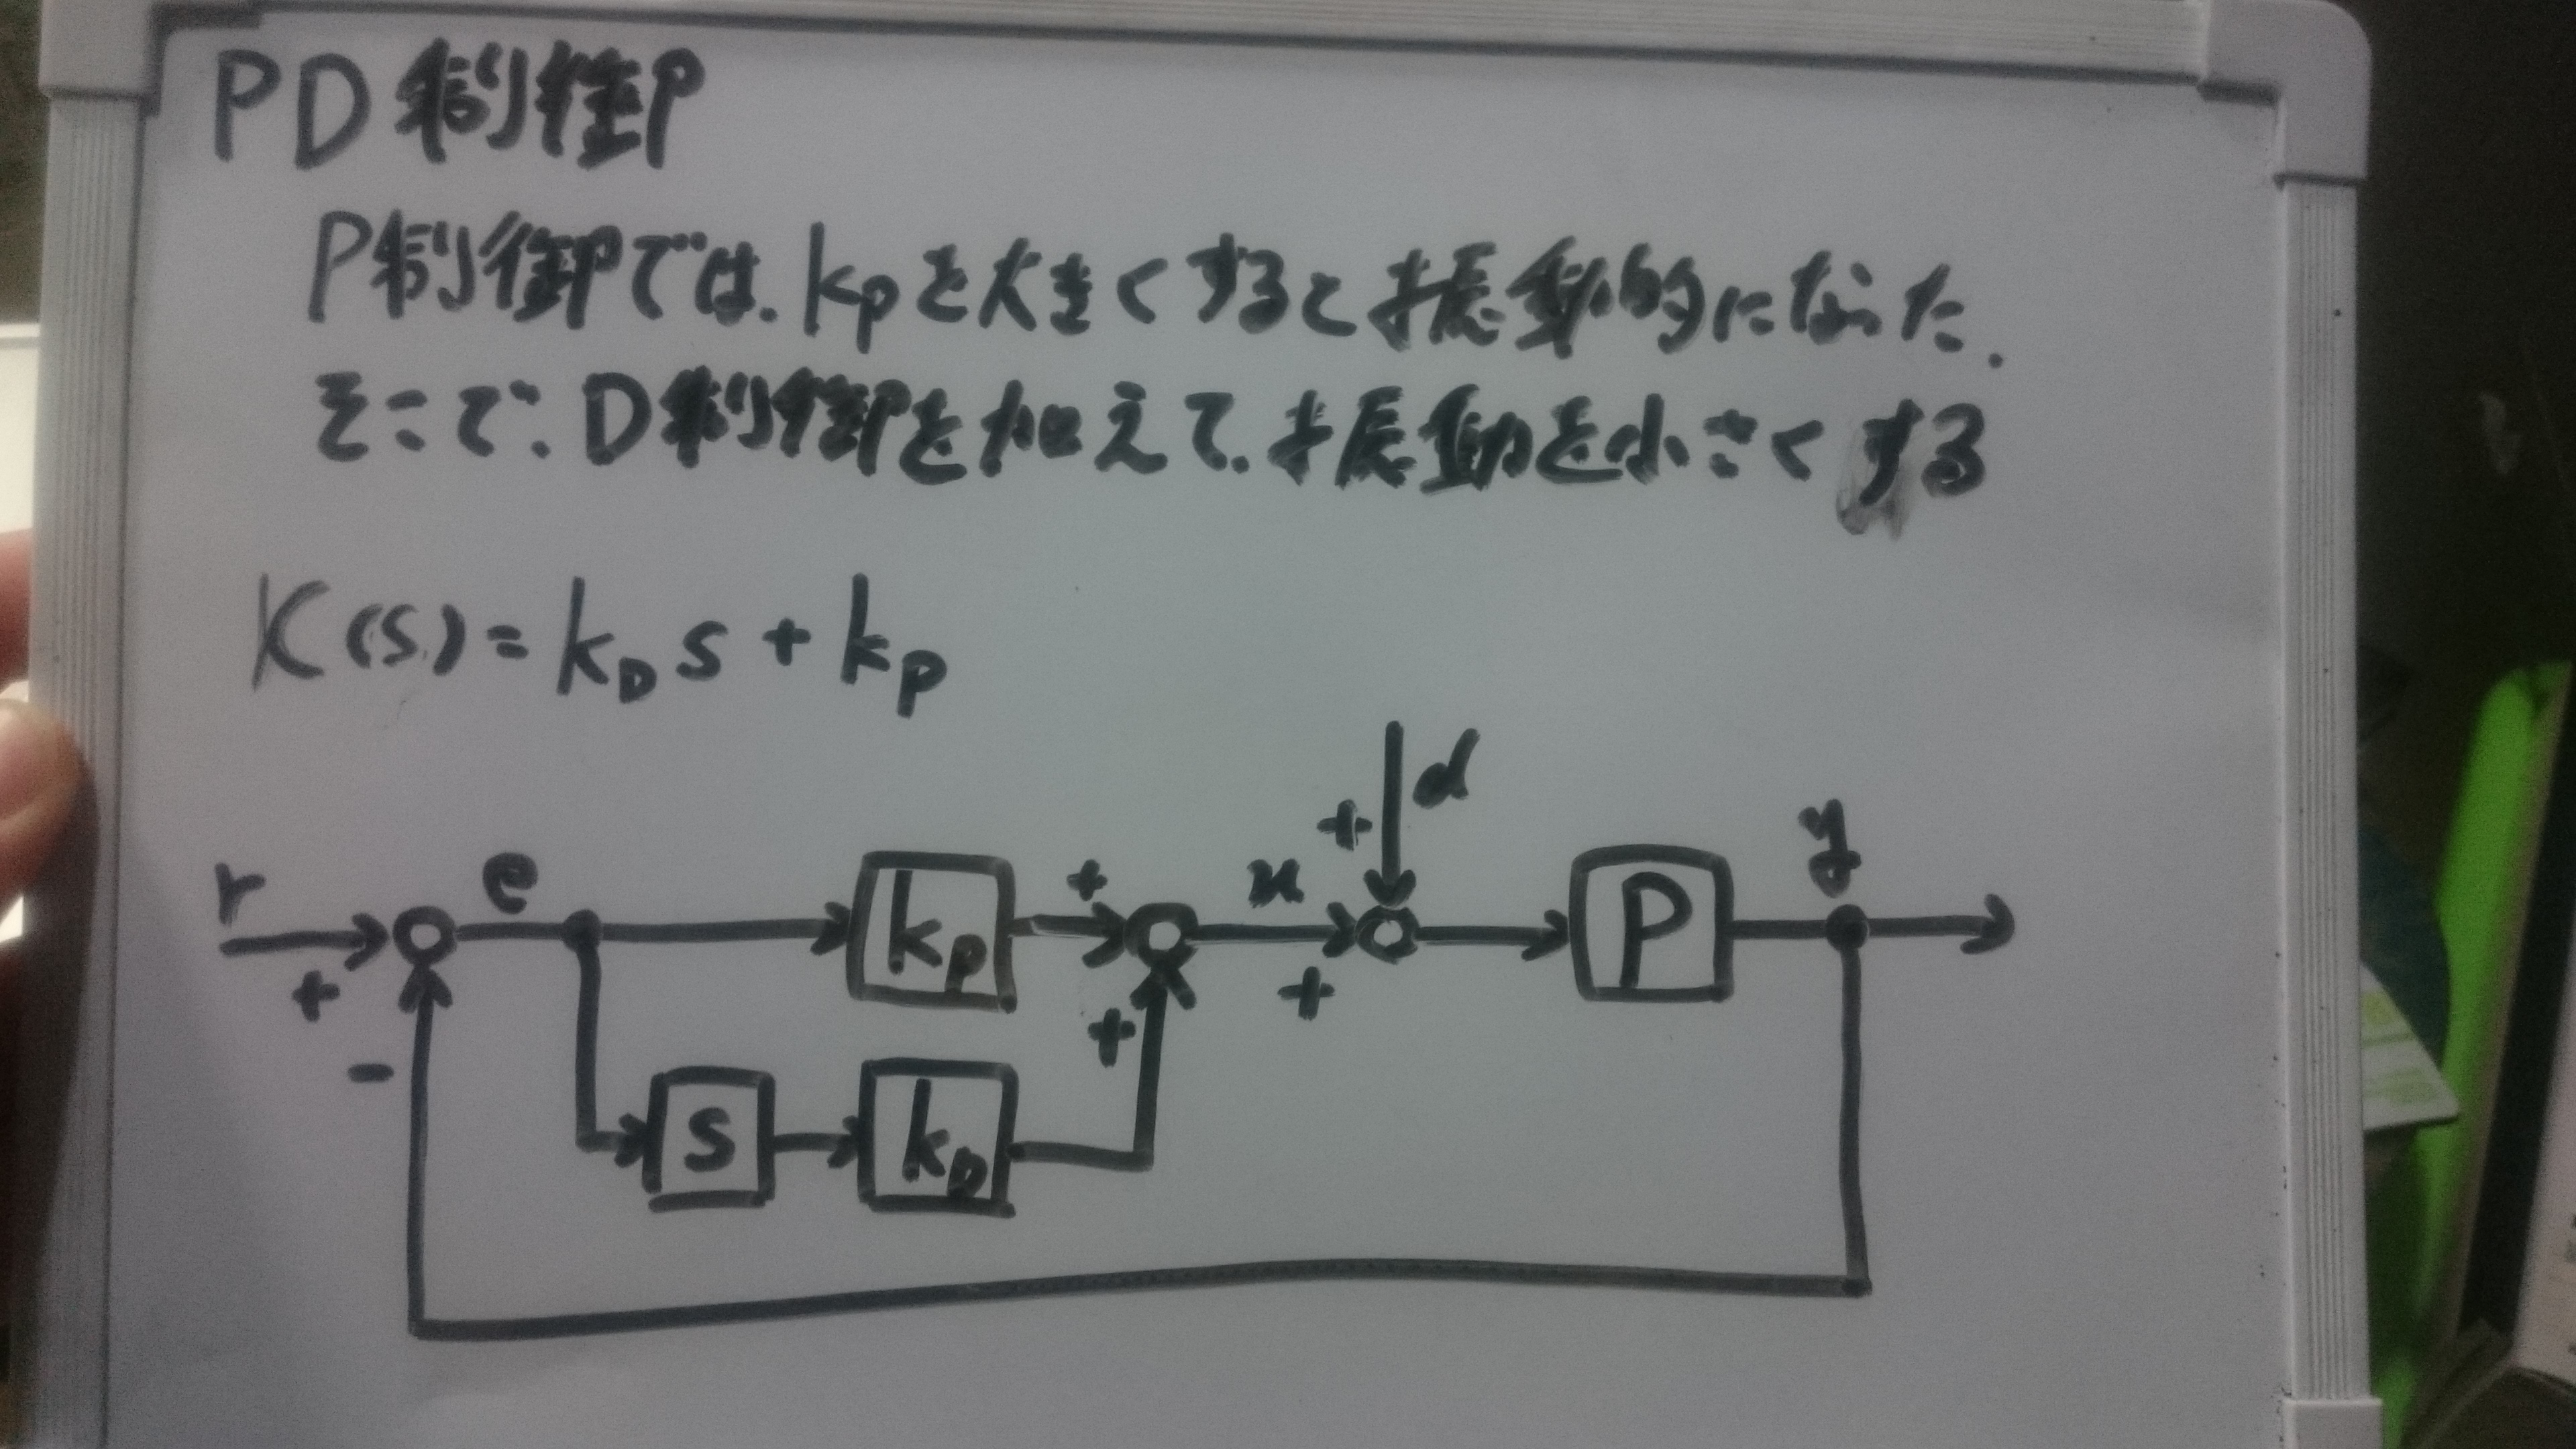 PD制御
P制御では、kpを大きくすると振動的になった.
そこで、D制御を加えて、振動を小さくする
K(s)=kDs+kP
d
+
r e kP + u P y
+ + +
-
s kD